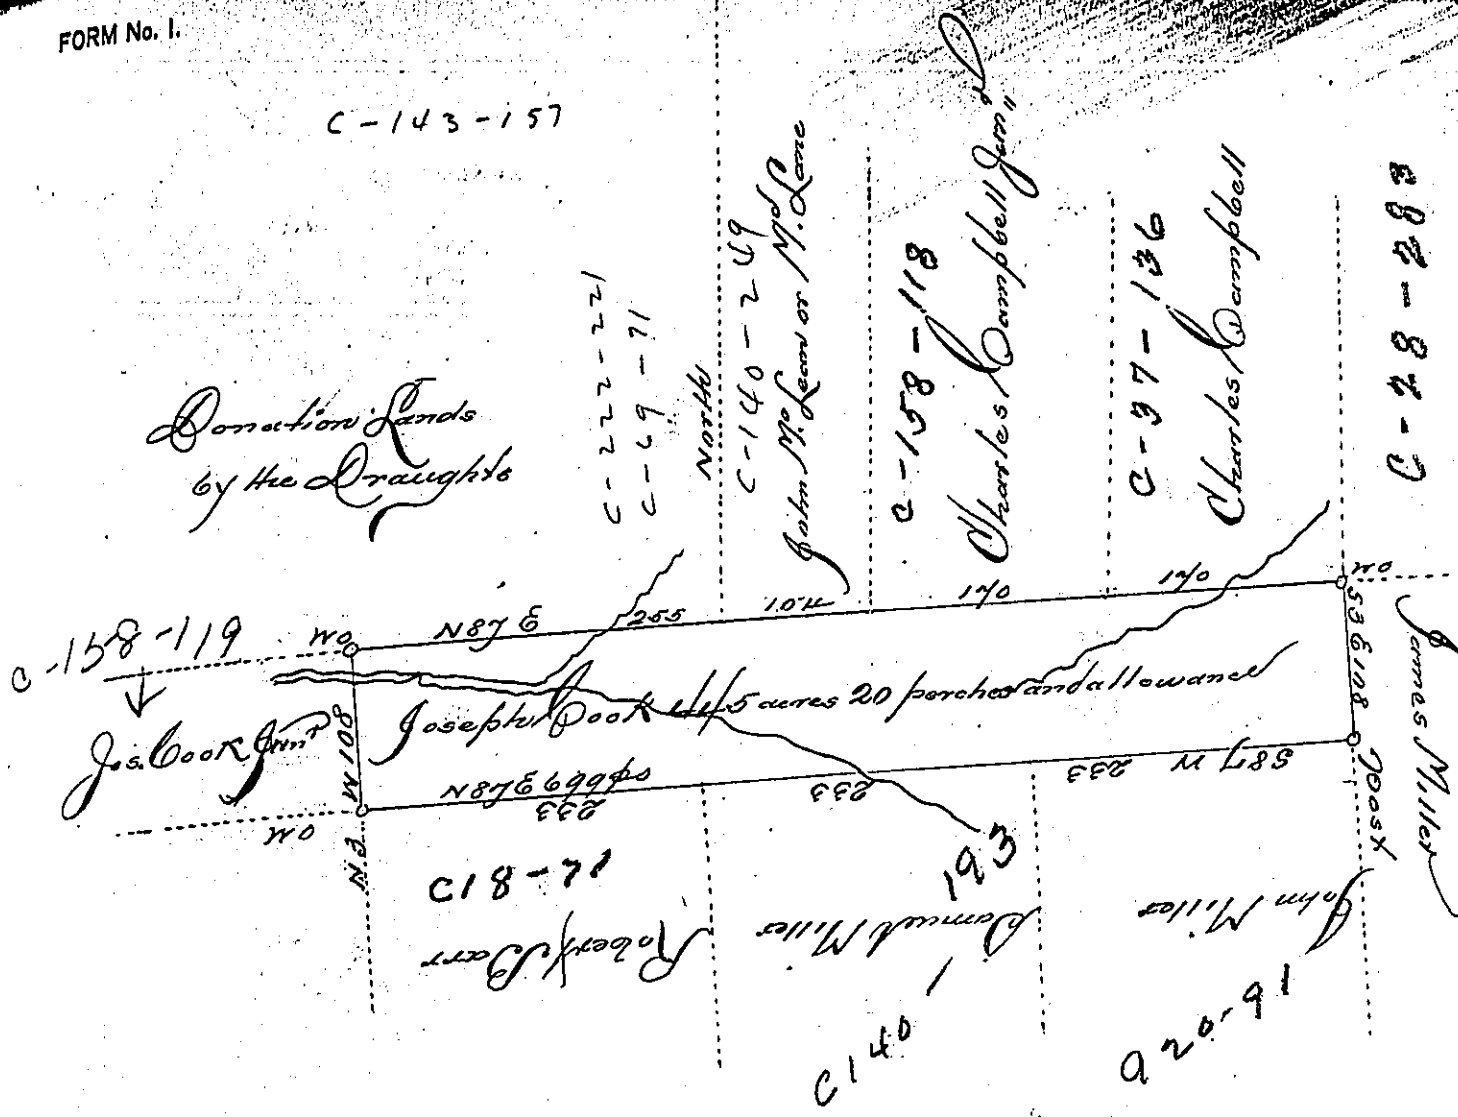 FORM No. 1.
C-143-157
Donation Lands
by the Draughts
C-222-221
C-69-71
North
C-140-249
John McLean or McLane
C-158-118
Charles Campbell Junr
C-37-136
Charles Campbell
C-28-283
C-158-119
Jos. Cook Junr
WO
N87E
255
104
170
170
WO
S3E108
Post
James Miller
Joseph Cook 445 acres 20 perches and allowance
N3W108
WO
N87E699ps
233
233
233
S87W
C18-71
Robert Barr
193
Samuel Miller
C140
John Miller
A20-91